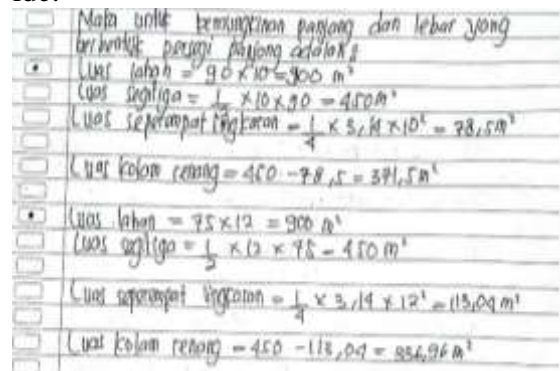 Maka untuk kemungkinan panjang dan lebar yang
berbentuk persegi panjang adalah :
• Luas lahan = 90 x 10 = 900 m²
Luas segitiga = 1/2 x 10 x 90 = 450 m²
Luas seperempat lingkaran = 1/4 x 3,14 x 10² = 78,5 m²
Luas kolam renang = 450 - 78,5 = 371,5 m²
• Luas lahan = 75 x 12 = 900 m²
Luas segitiga = 1/2 x 12 x 75 = 450 m²
Luas seperempat lingkaran = 1/4 x 3,14 x 12² = 113,04 m²
Luas kolam renang = 450 - 113,04 = 336,96 m²